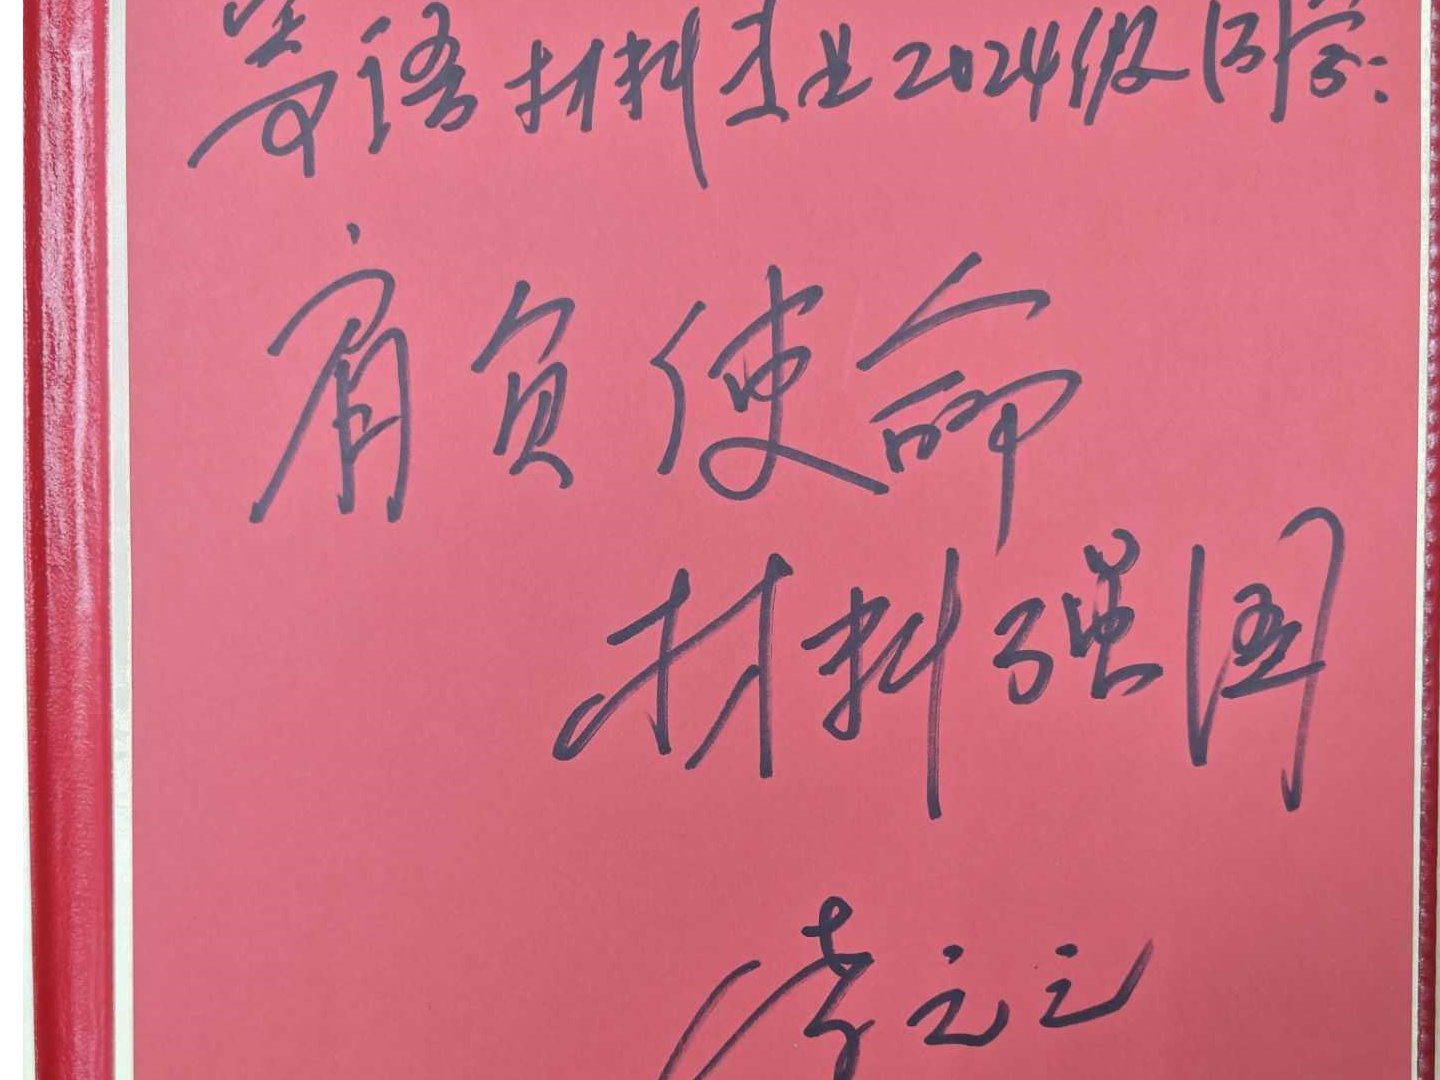 寄语材料专业2024级同学:
肩负使命
材料强国
李元元